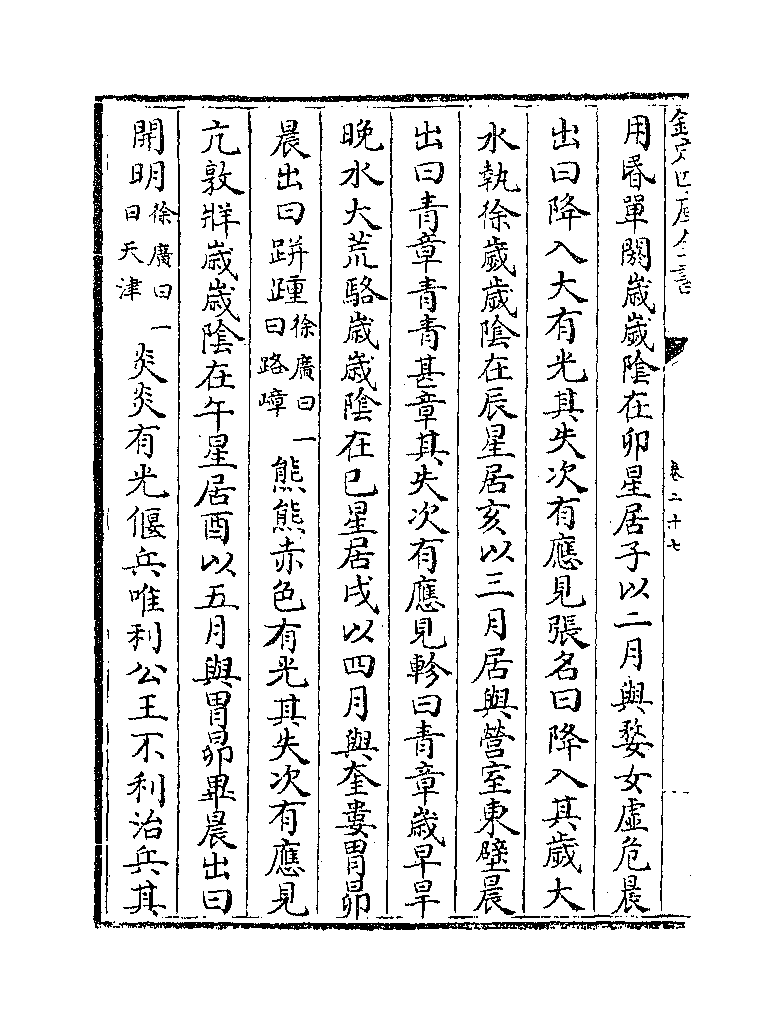 欽定四庫全書
卷二十七
用昬單閼嵗嵗隂在卯星居子以二月與婺女虛危晨
出曰降入大有光其失次有應見張名曰降入其歲大
水執徐歲歲隂在辰星居亥以三月居與營室東壁晨
出曰青章青青甚章其失次有應見軫曰青章嵗早旱
晚水大荒駱嵗嵗隂在巳星居戌以四月與奎婁胃昴
晨出曰跰踵徐廣曰一曰路嶂熊熊赤色有光其失次有應見
亢敦牂嵗嵗隂在午星居酉以五月與胃昴畢晨出曰
開明徐廣曰一曰天津炎炎有光偃兵唯利公王不利治兵其